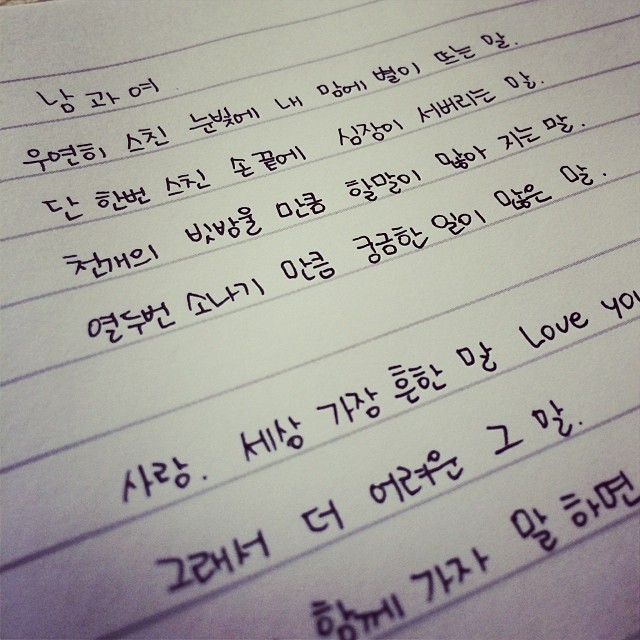 남 과 여
우연히 스친 눈빛에 내 맘에 별이 뜨는 말.
단 한번 스친 손끝에 심장이 서버리는 말.
천개의 빗방울 만큼 할말이 많아 지는 말.
열두번 소나기 만큼 궁금한 일이 많은 말.
사랑. 세상 가장 흔한 말 Love you
그래서 더 어려운 그 말.
함께 가자 말 하면